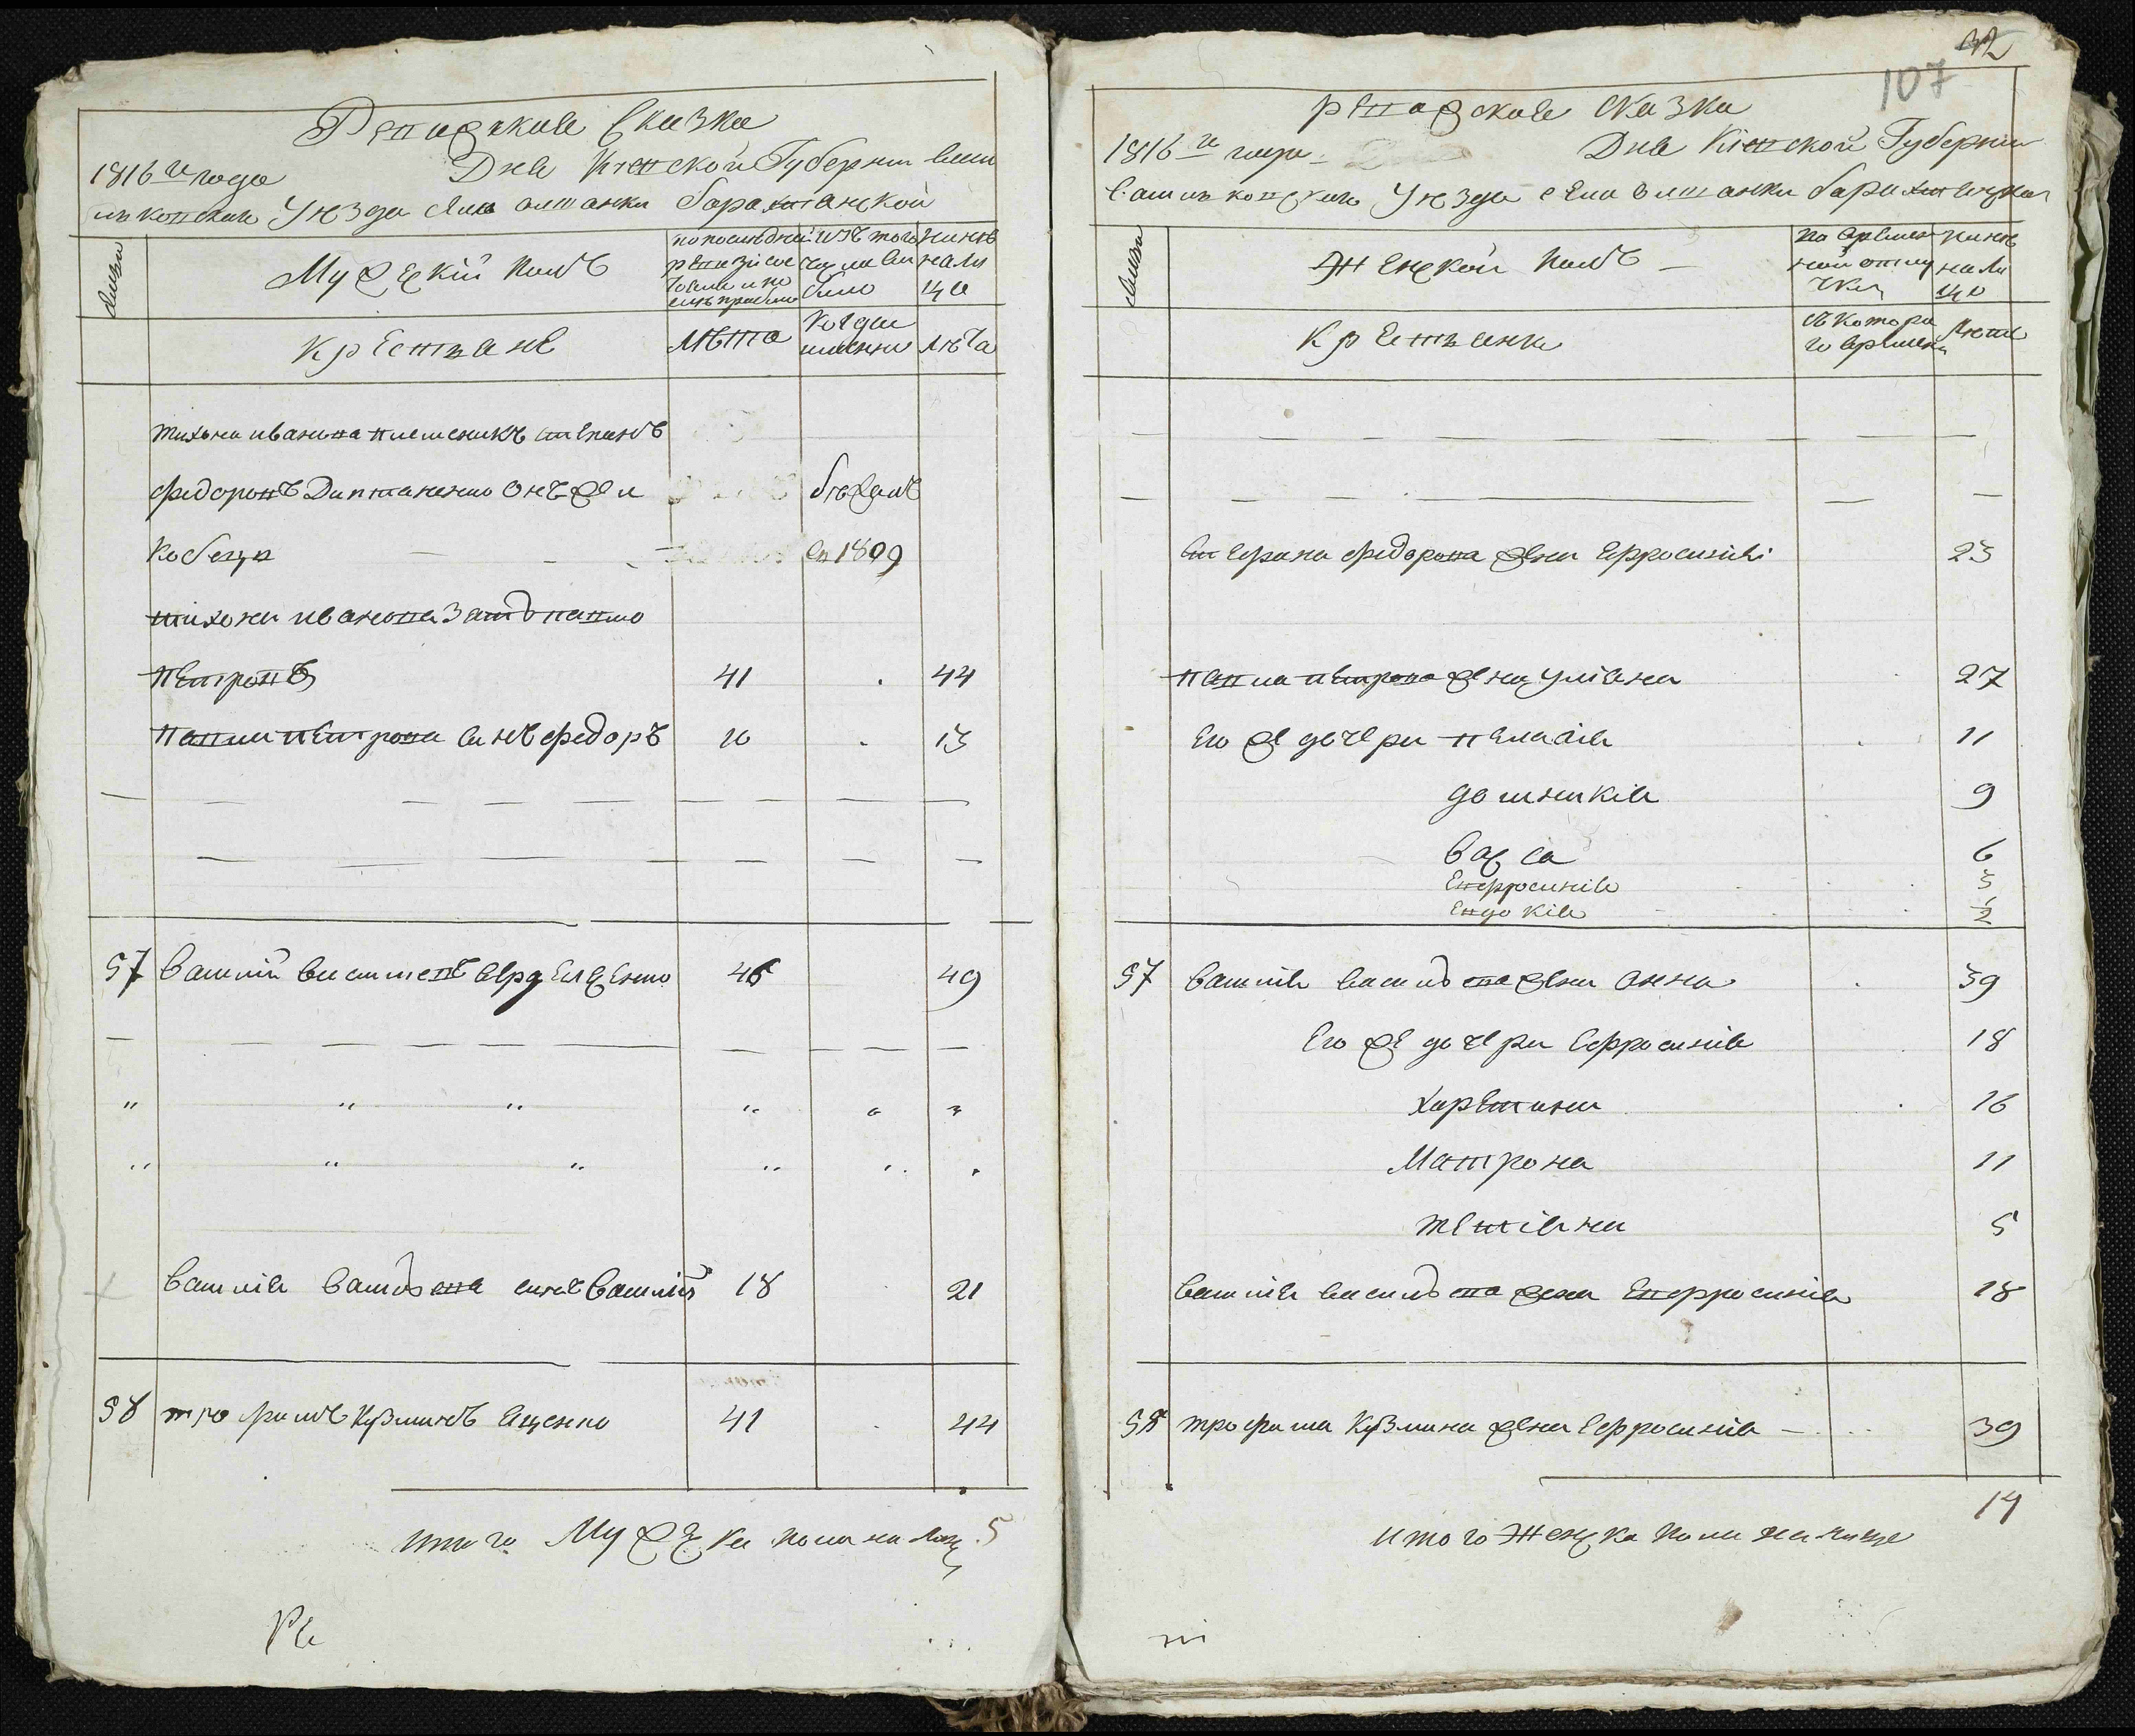 Ревизская Сказка
1816 го года Дня Киевской Губернии васи
льковскаго Уезда села олшанки барахтянской
Мужеский полъ
по последней ревизии состояло и после прибыло
изъ того числа выбыло
ныне на лицо
Крестьяне
Лѣта
Когда именно
Лѣта
тихона иванова племеникъ степанъ
федоровъ Онъ же и бѣжалъ
в 1809
тихона иванова зять павло
петровъ 41 44
павла петрова синъ федоръ 10 13
57 Василий василиевъ 46 49
Василия Василева синъ Василий 18 21
58 трофимъ Кузминъ Яценко 41 44
итого Мужеска пола на лицо 5
Ре
32
107
ревизская сказка
1816 го года Дня Киевской Губернии
васильковскаго Уезда села олшанки барахтянской
Женской полъ
во временной отлучке
ныне на лицо
Крестьянки
съ котораго времени
Лѣта
степана федорова жена Ефросиния 23
павла петрова жена улияна 27
Его же дочери пелагия 11
домникия 9
Васса 6
Евфросиния 3
Евдокия 1/2
57 Василия василева жена анна 39
Его же дочери Ефросиния 18
харетина 16
Матрона 11
тетияна 5
Василия василева жена Евфросиния 18
58 трофима Кузмина жена Ефросиния 39
итого Женска пола на лице 14